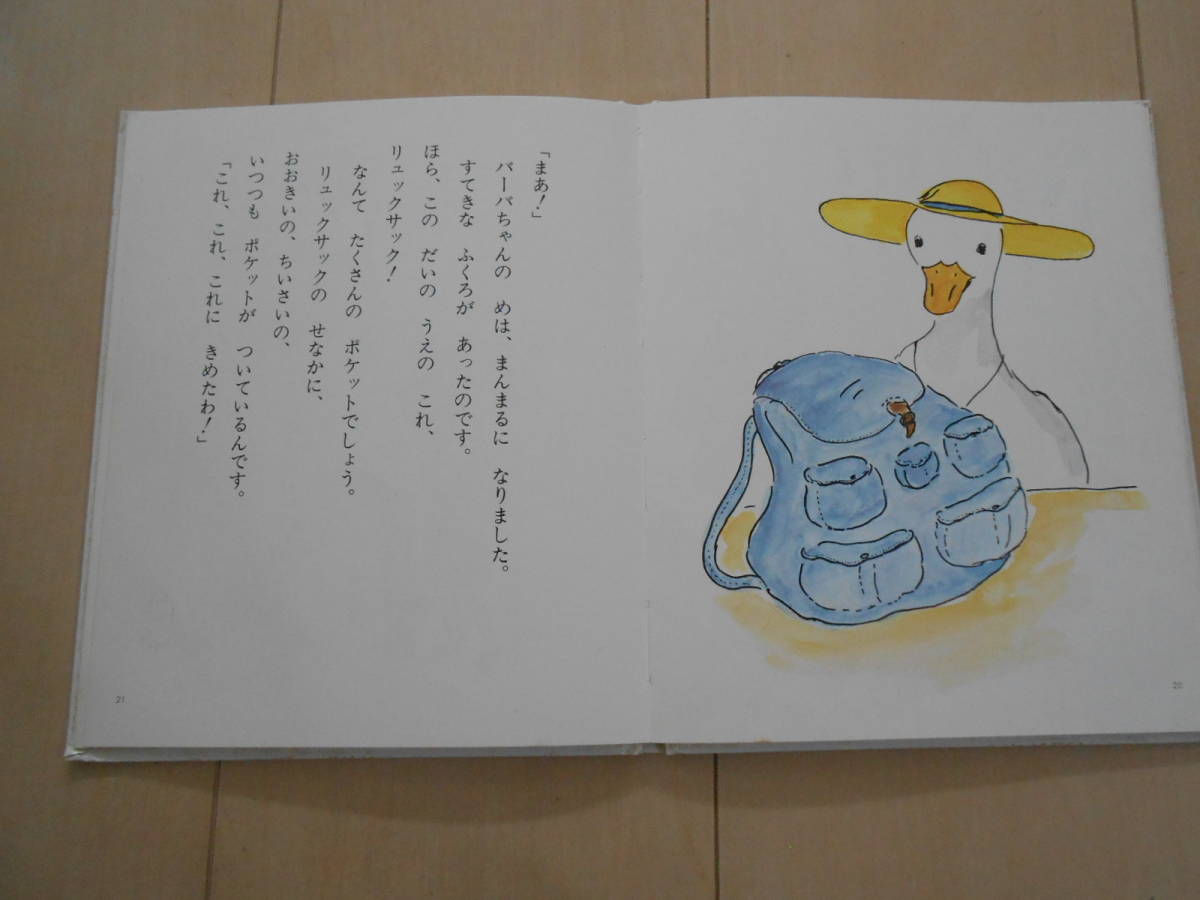 「まあ！」
バーバちゃんの　めは、まんまるに　なりました。
すてきな　ふくろが　あったのです。
ほら、この　だいの　うえの　これ、
リュックサック！
なんて　たくさんの　ポケットでしょう。
リュックサックの　せなかに、
おおきいの、ちいさいの、
いつつも　ポケットが　ついているんです。
「これ、これ、これに　きめたわ！」
21
20